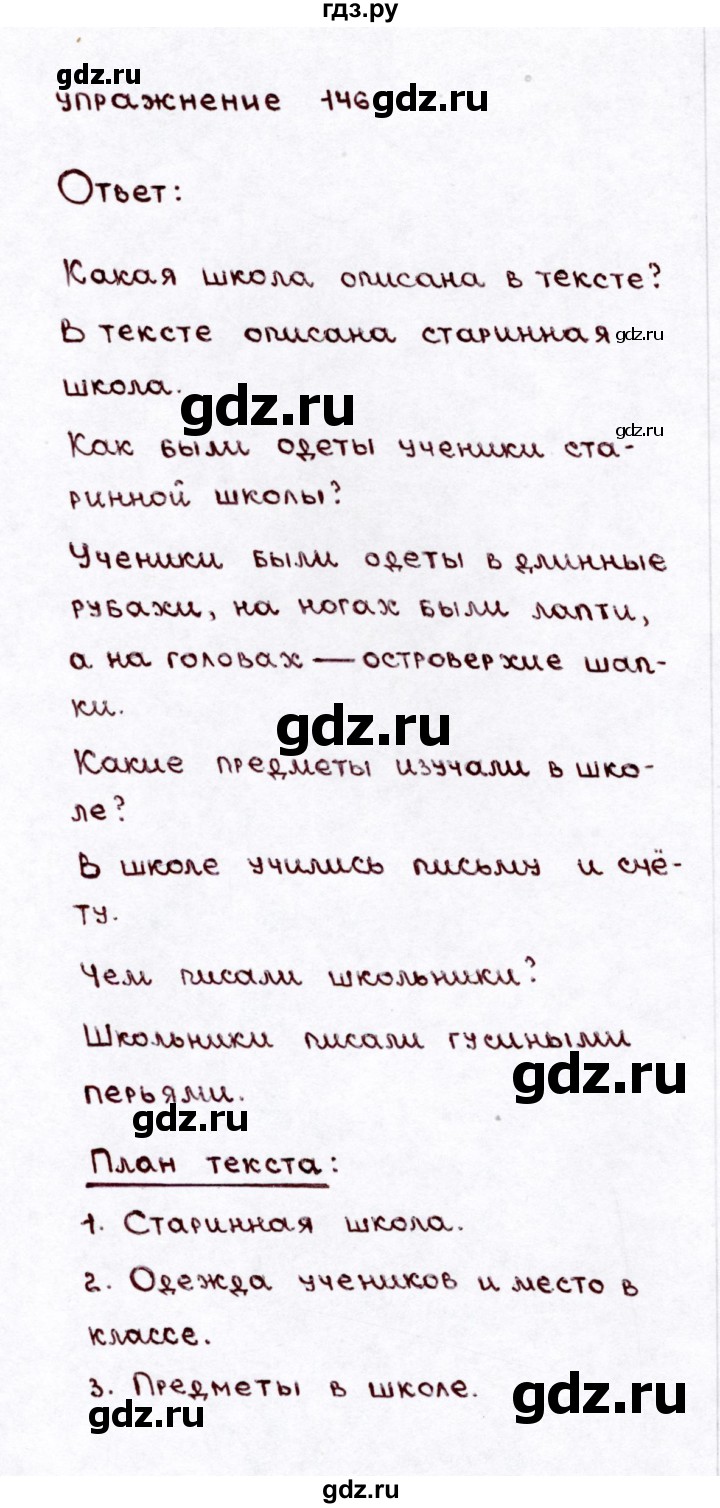 гдз.ру
gdz.ru
упражнение 146 gdz.ru
Ответ:
Какая школа описана в тексте?
В тексте описана старинная gdz.ru
школа.
gdz.ru
gdz.ru
Как были одеты ученики ста-
ринной школы?
Ученики были одеты в длинные
рубахи, на ногах были лапти,
а на головах — островерхие шап-
ки.
gdz.ru
Какие предметы изучали в шко-
ле?
В школе учились письму и счё-
ту.
Чем писали школьники?
Школьники писали гусиными
gdz.ru
перьями.
gdz.ru
План текста:
1. Старинная школа.
2. Одежда учеников и место в
классе.
3. Предметы в школе.
gdz.ru
gdz.ru
gdz.ru